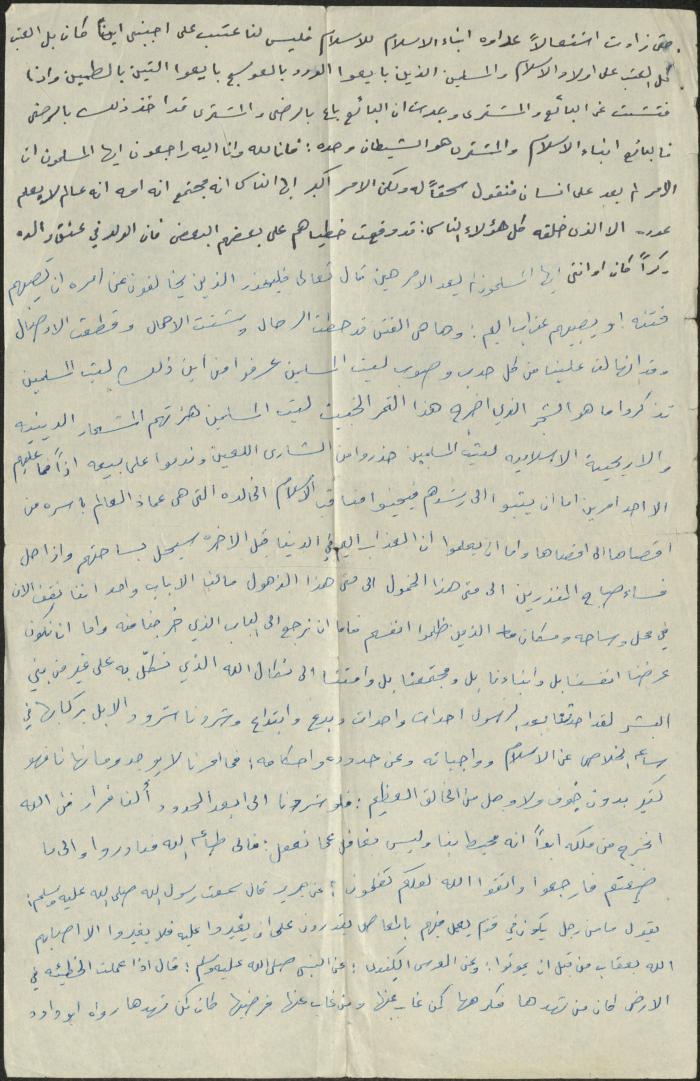 حتى زادت اشتعالاً على اوه ابناء الاسلام للاسلام فليس لنا عتب على اجنبي اينا كان بل العتب
كل العتب على اولاد الاسلام والمسلمين الذين بايعوا الورد بالعوسج بايعوا التين بالطين واذا
فتشت عن البائع والمشتري وجدت ان البائع باع بالرضى والمشترى قد اخذ ذلك بالرضى
فالبائع ابناء الاسلام والمشترى هو الشيطان وحده: فانا لله وانا اليه راجعون ايها المسلمون ان
الامر لم يعد على انسان فنقول سحقاً له ولكن الامر اكبر ايها الناس انه مجتمع انه امه انه عالم لا يعلم
عدده الا الذى خلقه كل هؤلاء الناس: قد وقعت خطياهم على بعضهم البعض فان الولد في عنق والده
ذكراً كان او انثى ايها المسلمون لم يعد الامر هين قال تعالى فليحذر الذين يخالفون عن امره ان تصيبهم
فتنه او يصيبهم عذاب اليم: وها هى الفتن قد حطت الرحال وشتت الاحمال وقطعت الاوصال
وقد انهالت علينا من كل حدب وصوب ليت المسلمين عرفوا من اين ذلك ليت المسلمين
تذكروا ما هو الشجر الذي اخرج هذا الثمر الخبيث ليت المسلمين هزتهم المشعار الدينيه
والاريحية الاسلاميه ليت المسلمين حذروا من الشارى اللعين وندموا على بيعه اذاً فما عليهم
الا احد امرين اما ان يتبوا الى رشدهم فيحيوا مناقب الاسلام الخالده التى هى عماد العالم باسره من
اقصاها الى اقصاها واما ان يعلموا ان العذاب اليم في الدينا قبل الاخره سيحل بساحتهم واذا حل
فساء صباح المنذرين الى متى هذا الخمول الى متى هذا الذهول مالنا الا باب واحد اننا نقف الان
في محل وساحه ومسكان الذين ظلموا انفسهم فاما ان نرجع الى الباب الذي خرجنا منه واما ان نكون
عرضنا انفسنا بل وابناءنا بل ومجتمعنا بل وامتنا الى نكال الله الذي نكل به على غير من بني
البشر لقد احدثنا بعد الرسول احداث واحداث وبدع وابتداع وشردنا شرود الابل بركابها في
ساعه الخلاص عن الاسلام وواجباته وعن حدوده واحكامه: فما امرنا لا يوجد وما نهانا فهو
كثير بدون خوف ولا وجل من الخالق العظيم: فلو شردنا الى ابعد الحدود ألنا فرار من الله
انخرج من ملكه ابداً انه محيط بنا وليس بغافل عما نعمل: فالى طاعه الله فبادروا والى ما
ضيعتم فارجعوا واتقوا الله لعلكم تفلحون: عن جرير قال سمعت رسول الله صلى الله عليه وسلم:
يقول ما من رجل يكون في قوم يعمل فيهم بالمعاصى يقدرون على ان يغيروا عليه فلا يغيروا الا اصابهم
الله بعقاب من قبل ان يموتوا: وعن العرس الكندى: عن النبى صلى الله عليه وسلم: قال اذا عملت الخطيئه في
الارض كان من شهدها فكرهها كمن غاب عنها ومن غاب عنها فرضيها كان كمن شهدها رواه ابو داود